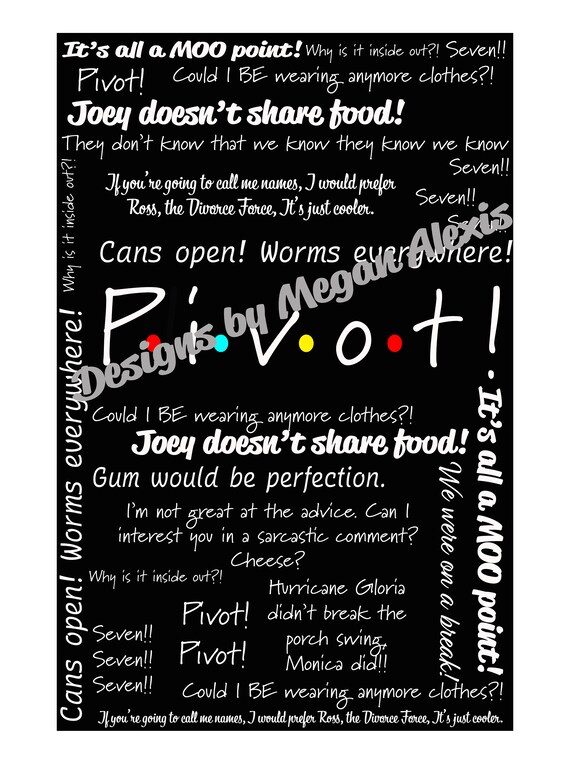 It's all a MOO point! Why is it inside out?! Seven!!
Pivot! Could I BE wearing anymore clothes?!
Joey doesn't share food!
They don't know that we know they know we know
Seven!!
If you're going to call me names, I would prefer
Ross, the Divorce Force, It's just cooler.
Seven!!
Seven!!
Why is it inside out?!
Cans open! Worms everywhere!
Pivot!
Designs by Megan Alexis
Cans open! Worms everywhere!
Could I BE wearing anymore clothes?!
Joey doesn't share food!
It's all a MOO point!
We were on a break!
Gum would be perfection.
I'm not great at the advice. Can I
interest you in a sarcastic comment?
Cheese?
Why is it inside out?!
Hurricane Gloria
didn't break the
porch swing,
Monica did!!
Pivot!
Pivot!
Seven!!
Seven!!
Seven!!
Could I BE wearing anymore clothes?!
If you're going to call me names, I would prefer Ross, the Divorce Force, It's just cooler.